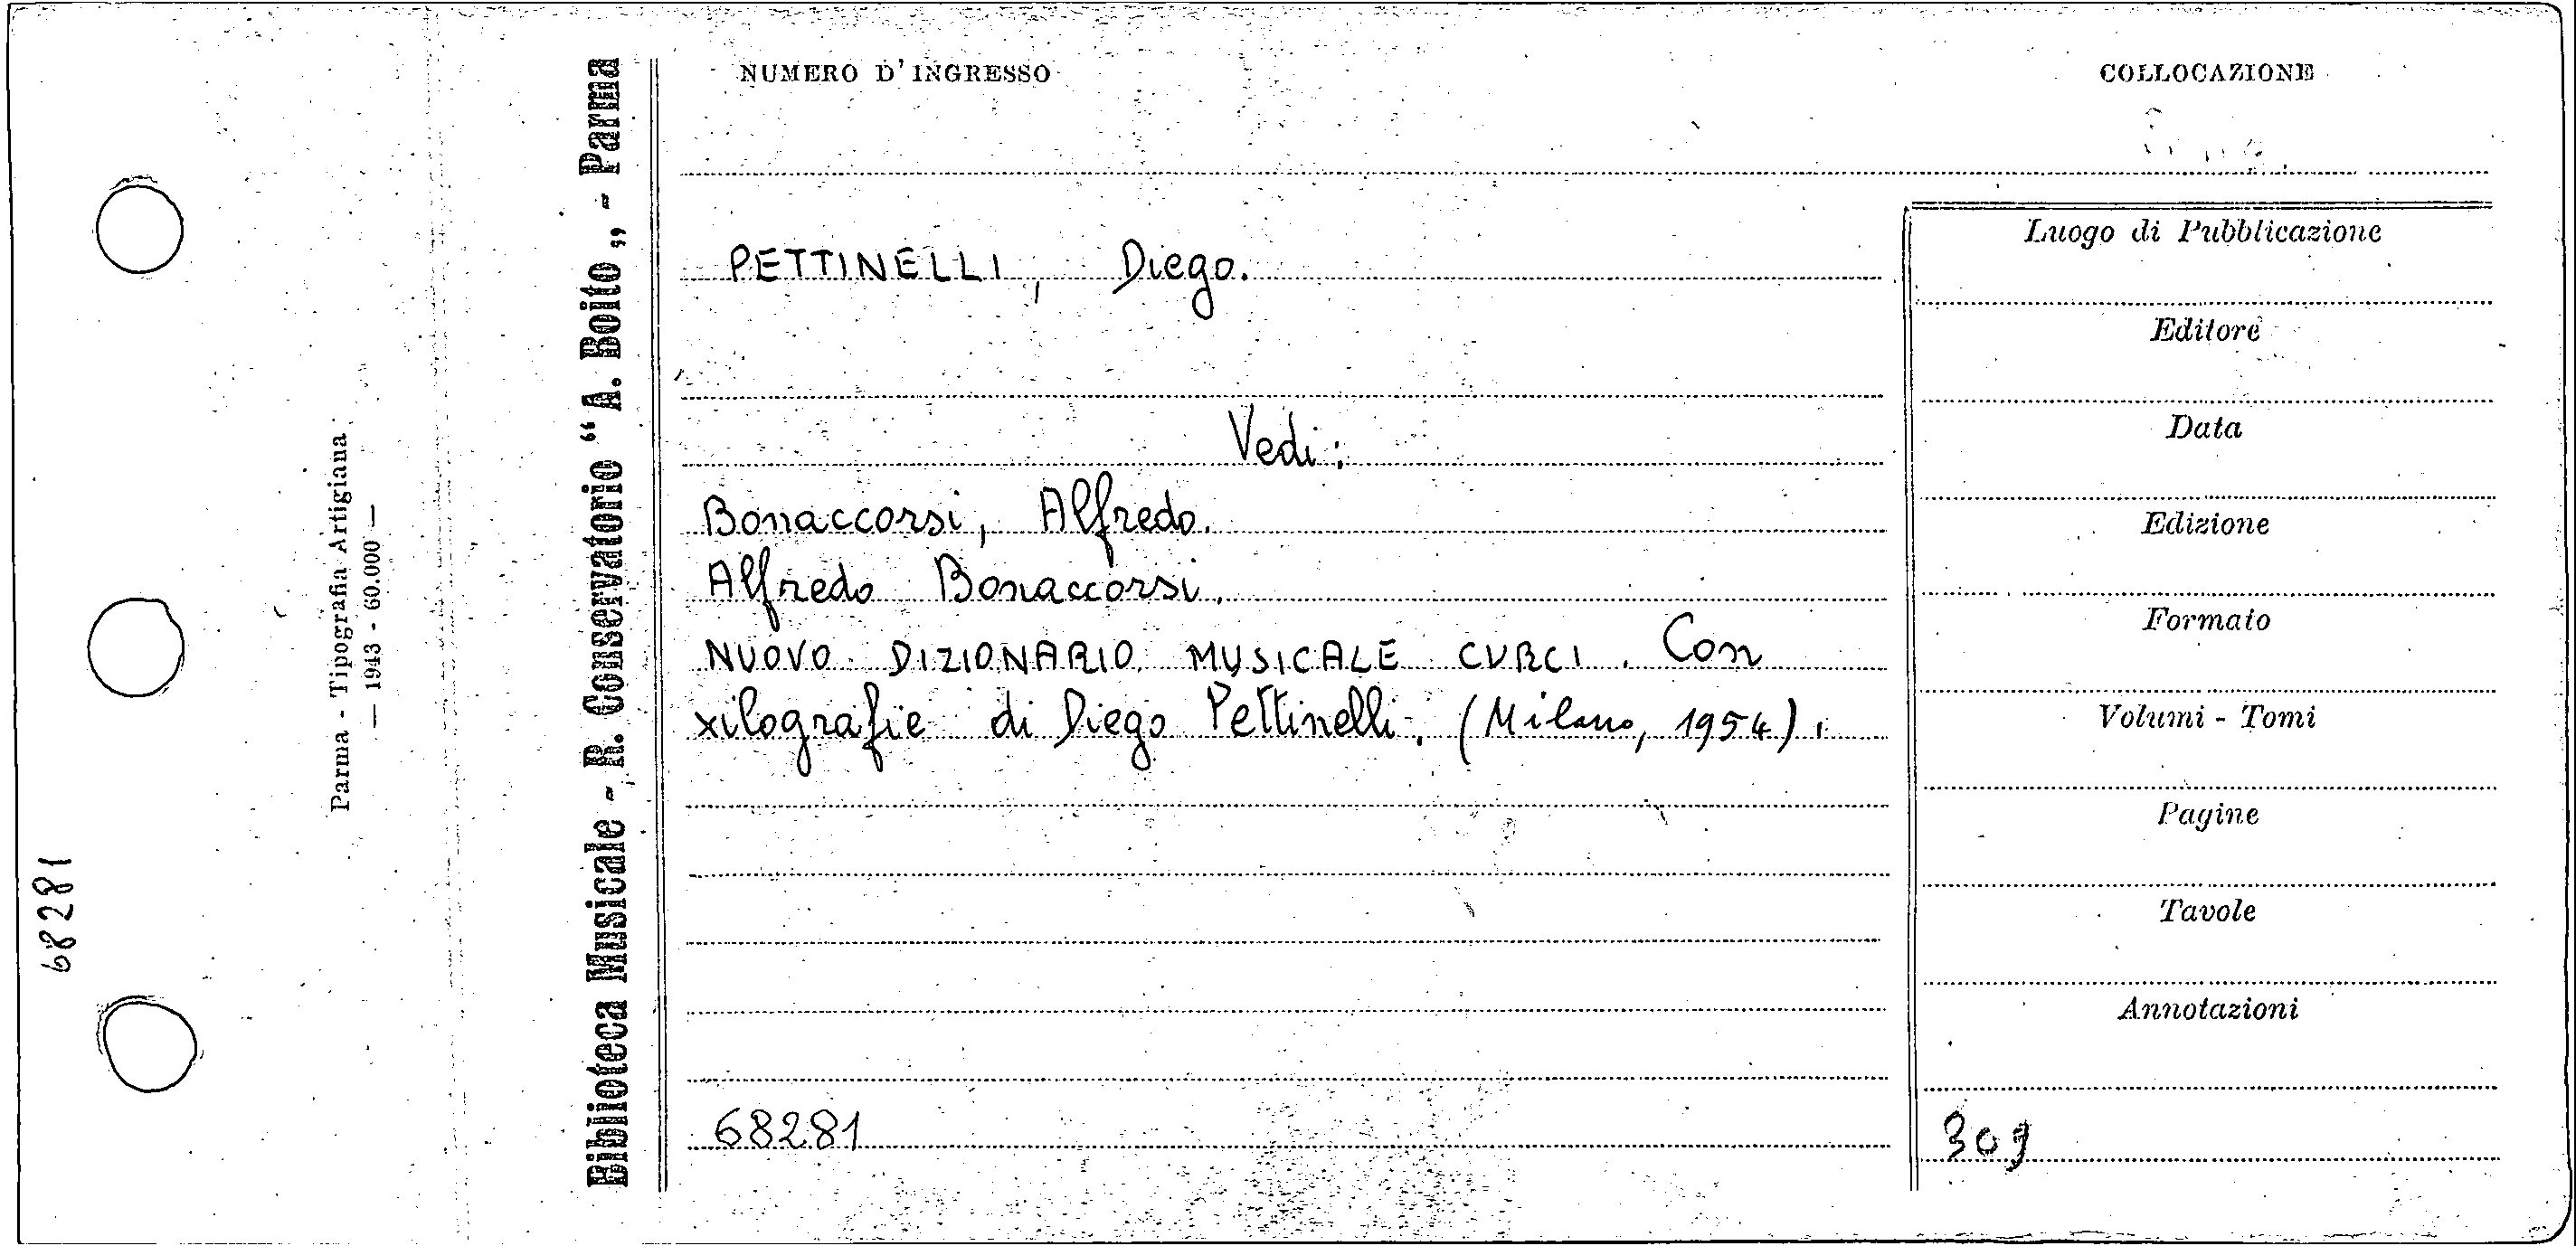 68281
Parma - Tipografia Artigiana
— 1943 - 60.000 —
Biblioteca Musicale - R. Conservatorio “A. Boito„ - Parma
NUMERO D'INGRESSO
COLLOCAZIONE
PETTINELLI, Diego.
Vedi:
Bonaccorsi, Alfredo.
Alfredo Bonaccorsi.
NUOVO DIZIONARIO MUSICALE CURCI. Con
xilografie di Diego Pettinelli. (Milano, 1954).
68281
Luogo di Pubblicazione
Editore
Data
Edizione
Formato
Volumi - Tomi
Pagine
Tavole
Annotazioni
309